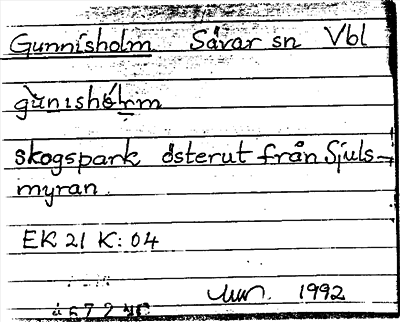 Gunnisholm Sävar sn Vbl
gùnıshólm
skogspark österut från Sjuls-
myran.
EK 21 K: 04
1992